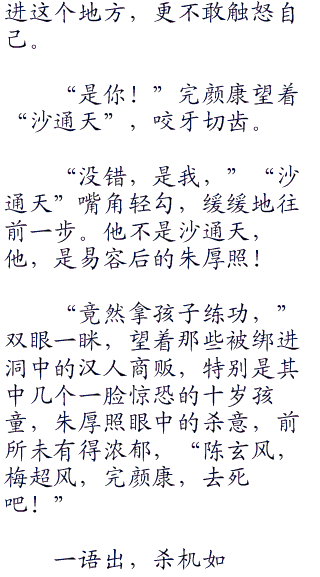 进这个地方，更不敢触怒自
己。
“是你！”完颜康望着
“沙通天”，咬牙切齿。
“没错，是我，”“沙
通天”嘴角轻勾，缓缓地往
前一步。他不是沙通天，
他，是易容后的朱厚照！
“竟然拿孩子练功，”
双眼一眯，望着那些被绑进
洞中的汉人商贩，特别是其
中几个一脸惊恐的十岁孩
童，朱厚照眼中的杀意，前
所未有得浓郁，“陈玄风，
梅超风，完颜康，去死
吧！”
一语出，杀机如